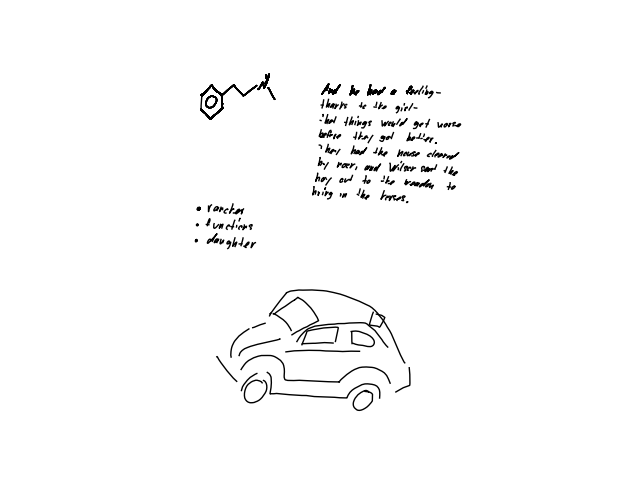 And he had a feeling-
thanks to the girl-
that things would get worse
before they got better.
They had the house cleared
by noon, and Wilson sent the
boy out to the meadow to
bring in the horses.
• rancher
• functions
• daughter